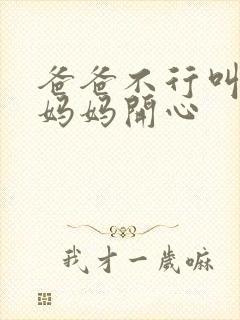 爸爸不行叫
妈妈開心
我才一歲嘛